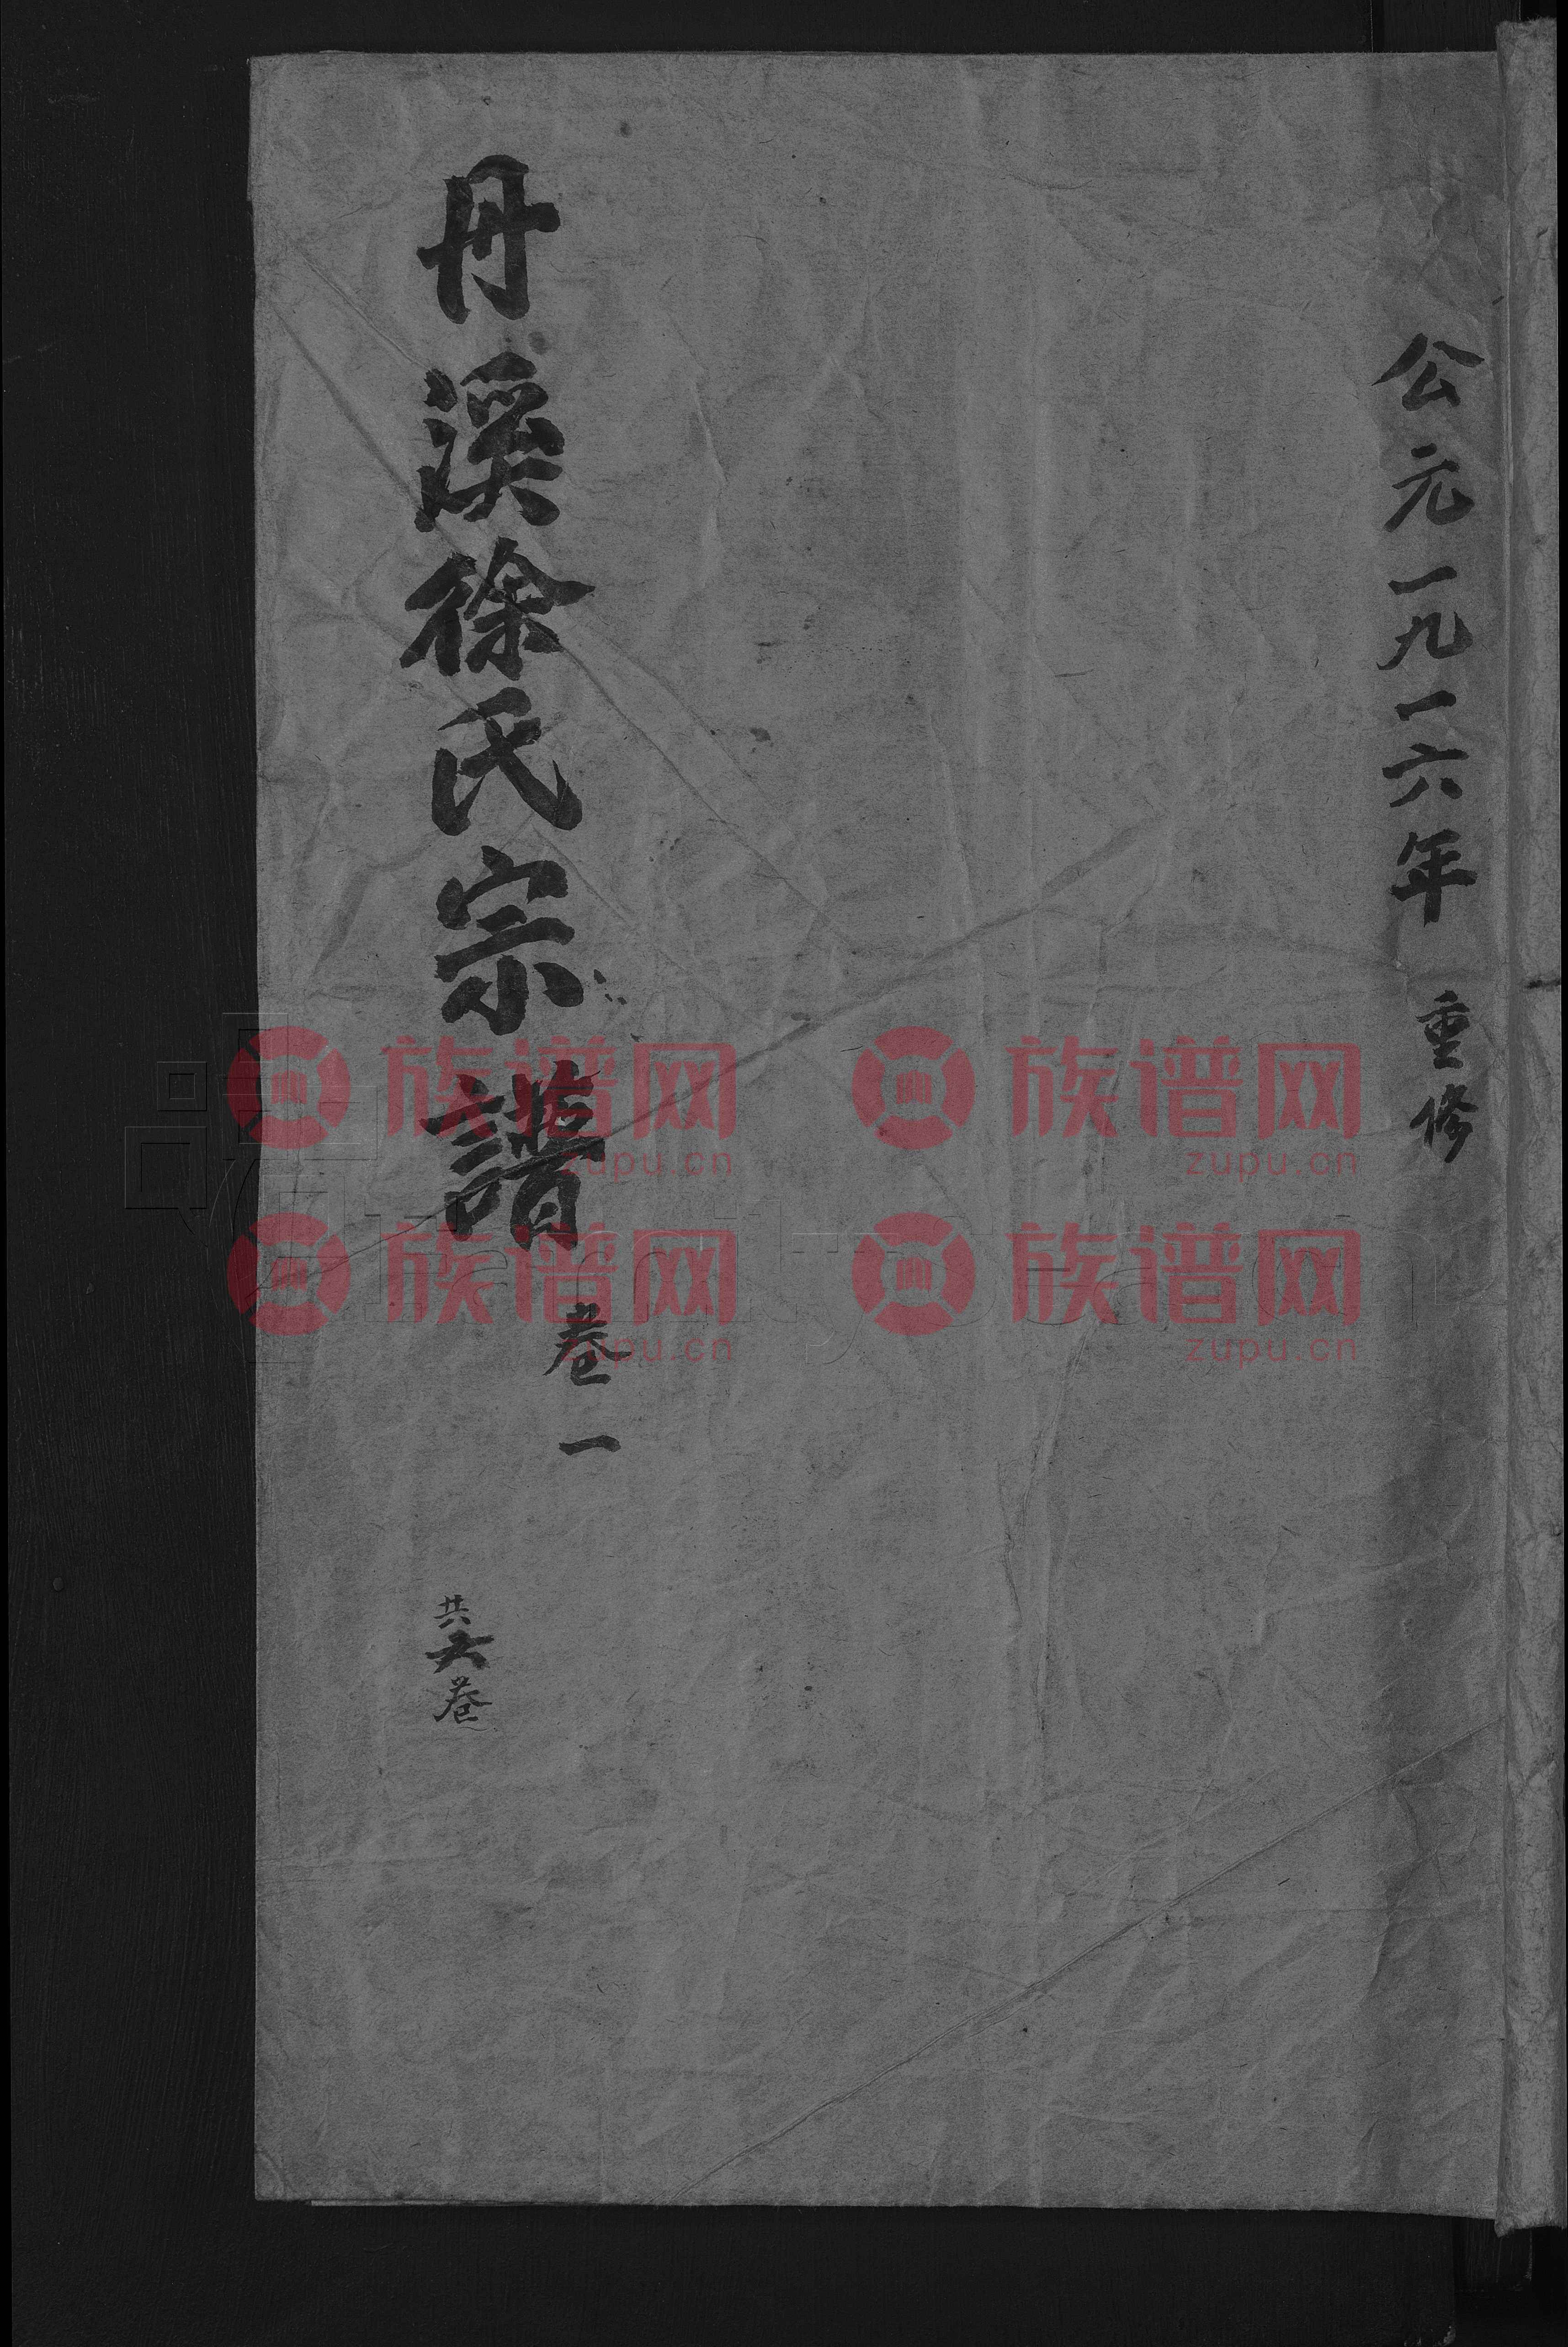 公元一九一六年 重修
丹溪徐氏宗譜
卷一
共六卷
族谱网 族谱网
zupu.cn zupu.cn
族谱网 族谱网
zupu.cn zupu.cn